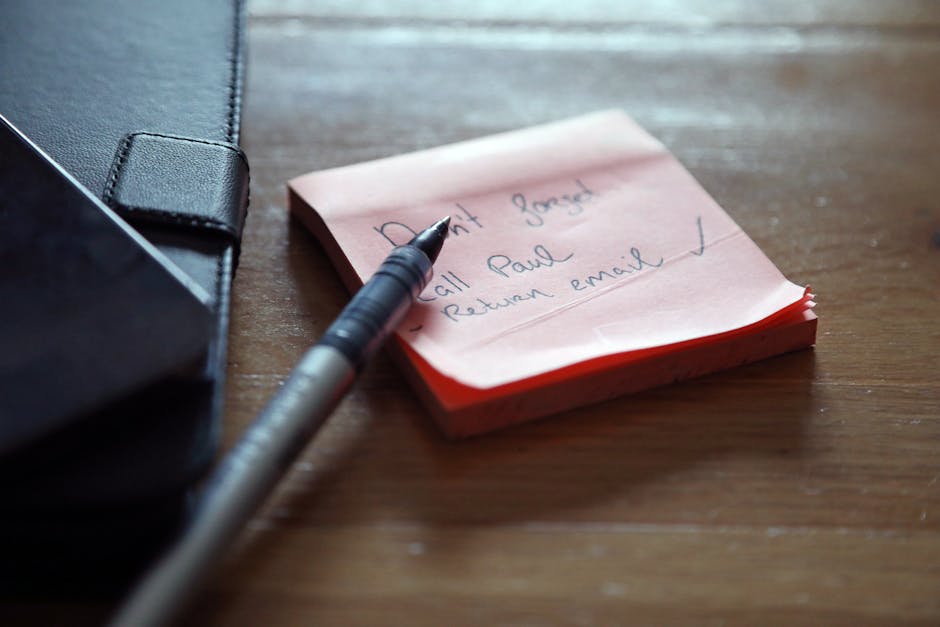 Don't forget
- Call Paul
- Return email ✓